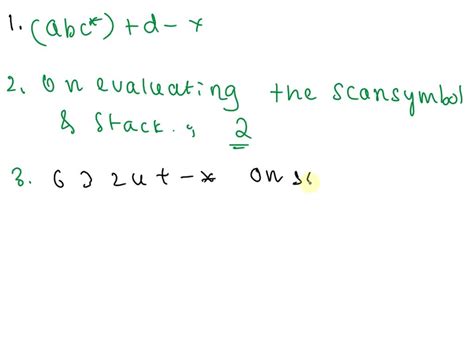 1. (abc*) + d - x
2. On evaluating the scansymbol
& stack. , 2
3. 6 3 2 4 + - * on sc